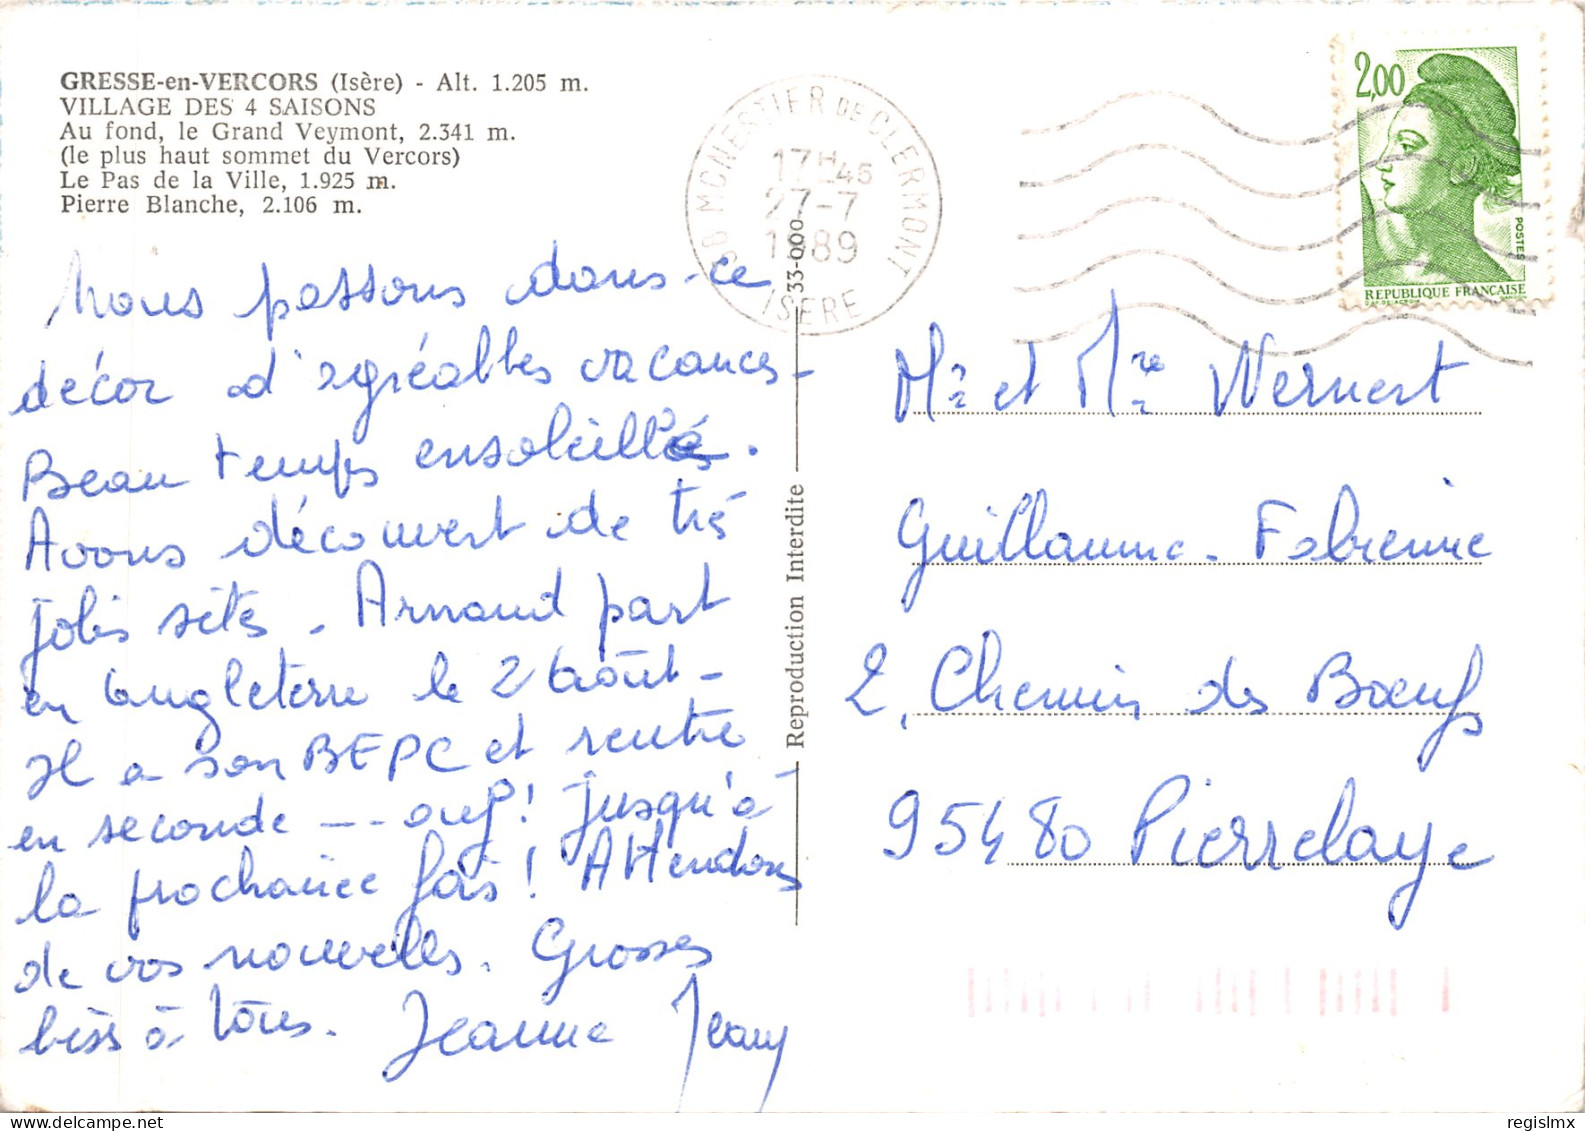 GRESSE-en-VERCORS (Isère) - Alt. 1.205 m.
VILLAGE DES 4 SAISONS
Au fond, le Grand Veymont, 2.341 m.
(le plus haut sommet du Vercors)
Le Pas de la Ville, 1.925 m.
Pierre Blanche, 2.106 m.
Nous passons dans ce
décor d'agréables vacances -
Beau temps ensoleillé.
Avons découvert de très
jolis sites. Arnaud part
en Angleterre le 2 Août -
Il a son BEPC et rentre
en seconde --- ouf! Jusqu'à
la prochaine fois! Attendons
de vos nouvelles. Grosses
biss à tous. Jeanne Jeany
38 MONESTIER DE CLERMONT
17H45
27-7
1989
ISERE
33-000
Reproduction Interdite
2,00
POSTES
REPUBLIQUE FRANÇAISE
Mr et Mre Wernert
Guillaume. Fabienne
2, Chemin des Boeufs
95480 Pierrelaye
regislmx